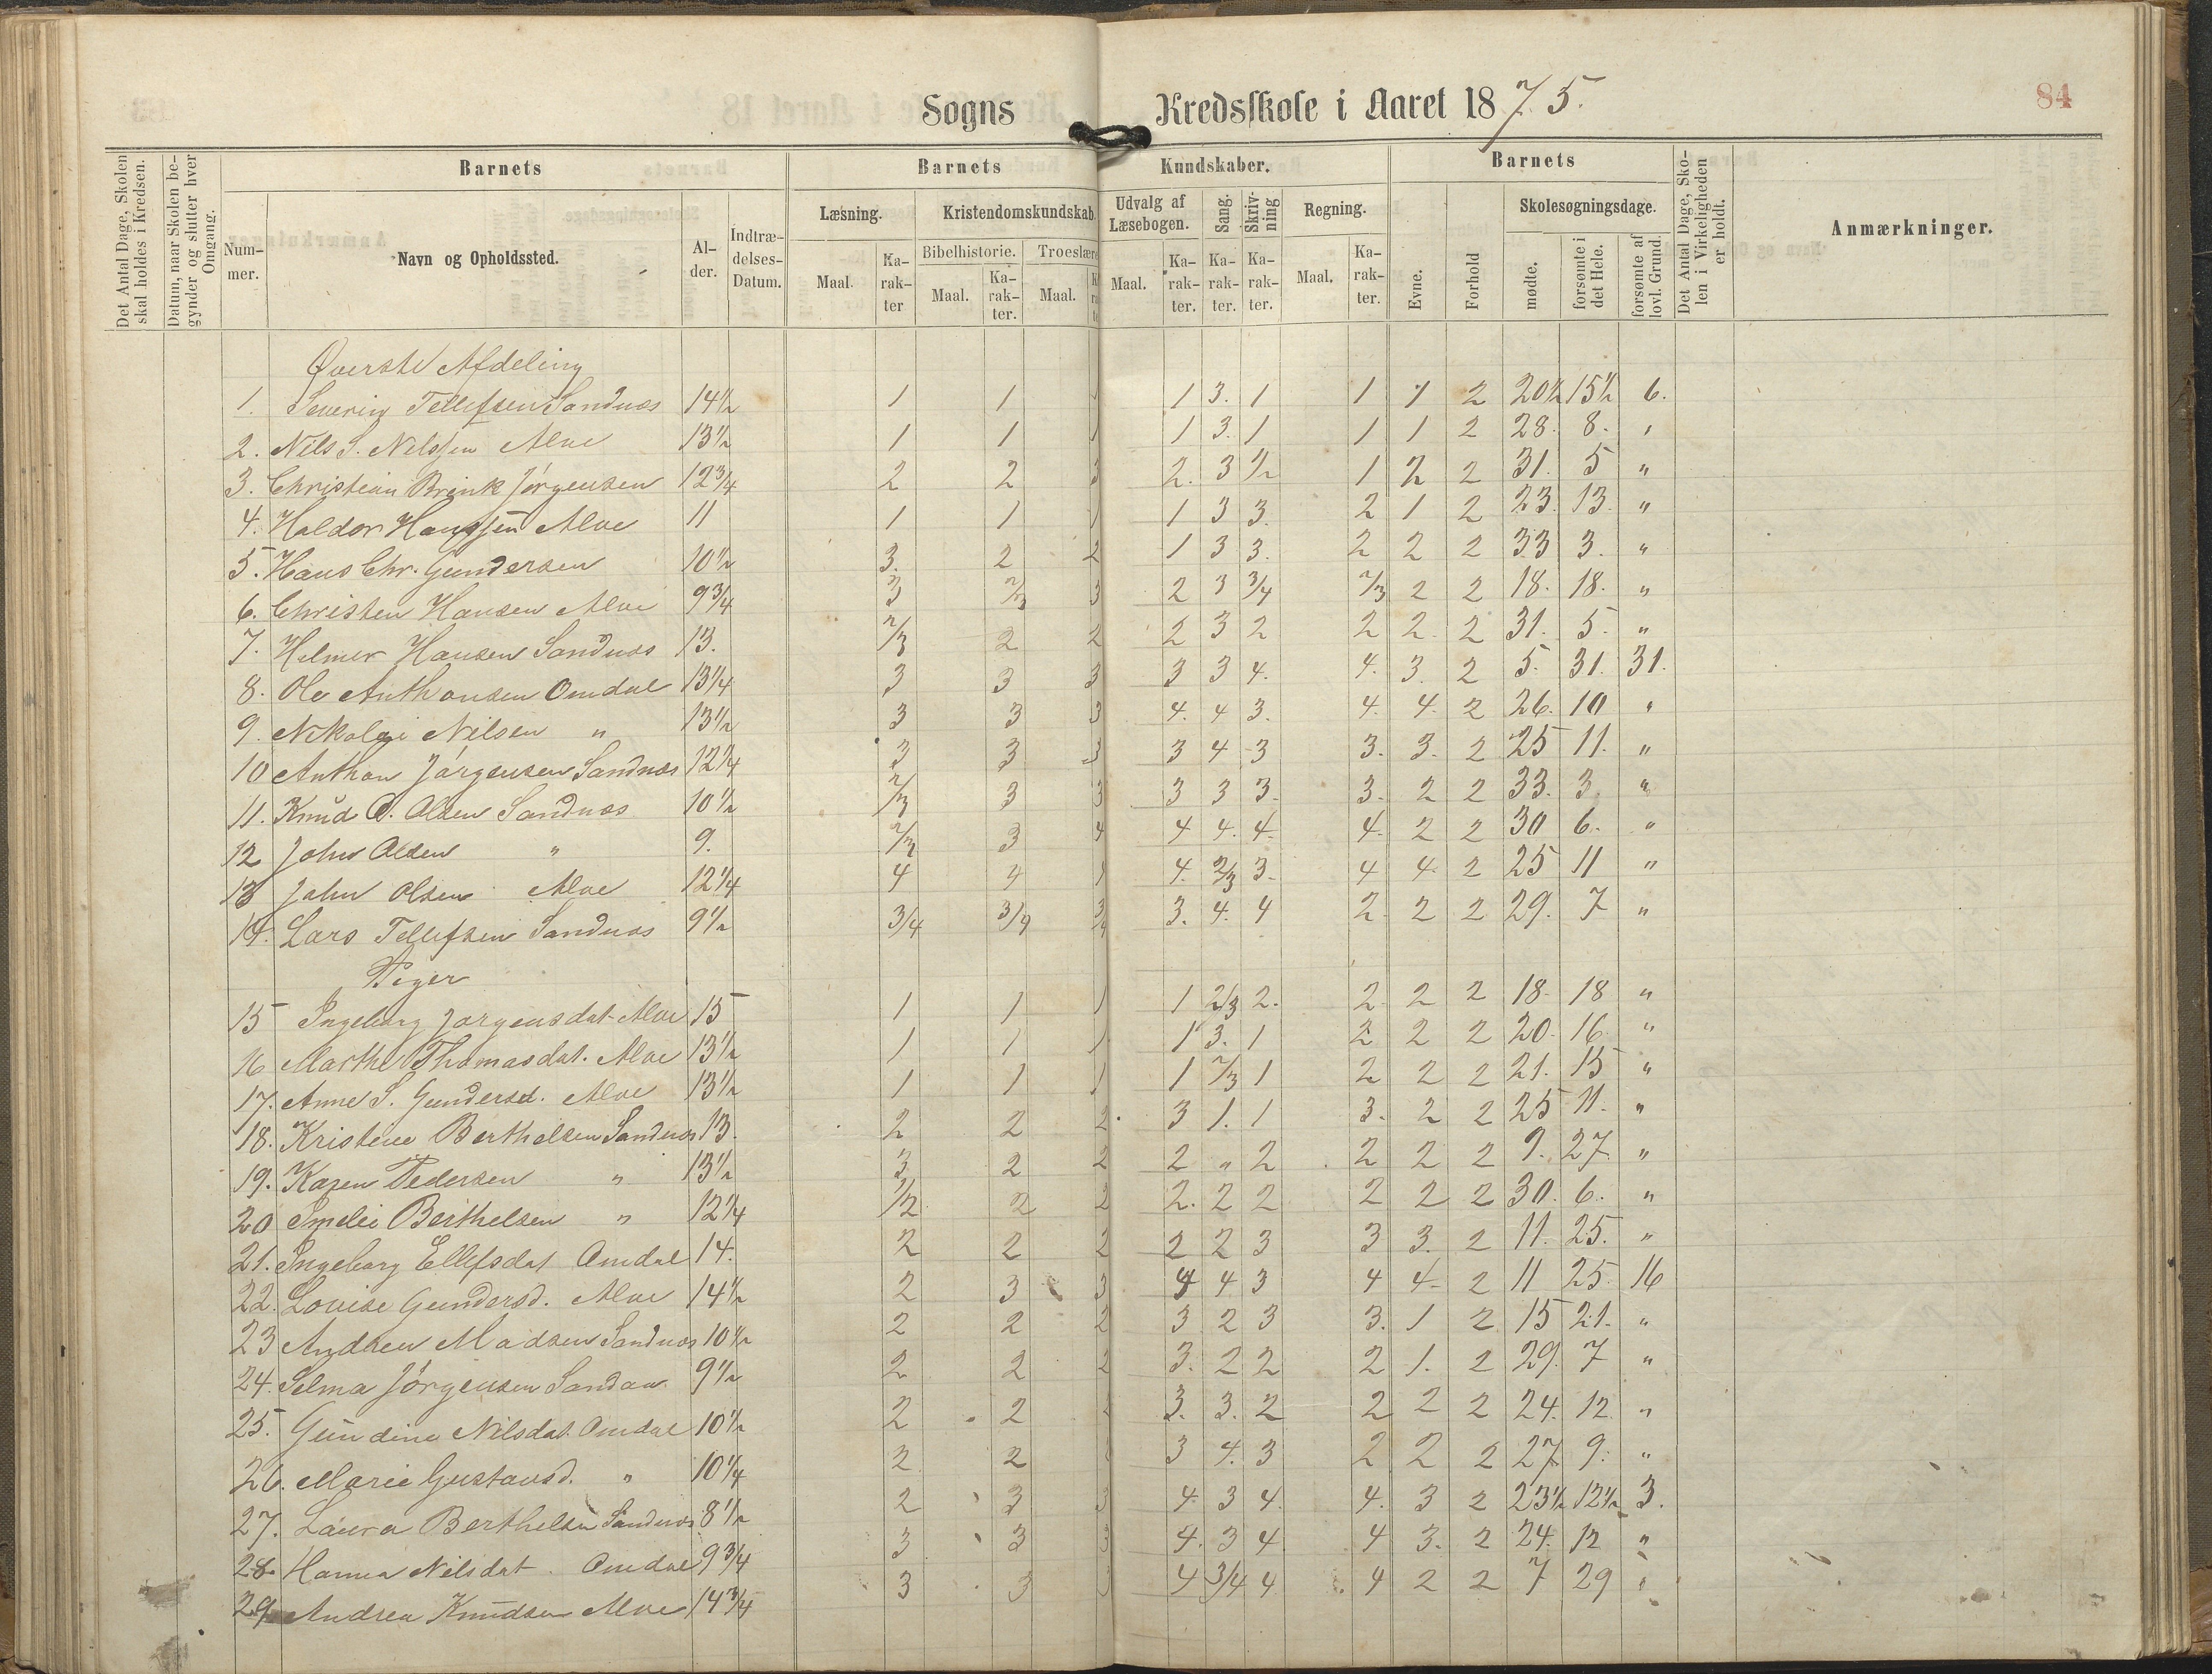 Sogns Kredsskole i Aaret 1875.
84
Det Antal Dage, Skolen skal holdes i Kredsen.
Datum, naar Skolen begynder og slutter hver Omgang.
Barnets
Nummer.
Navn og Opholdssted.
Alder.
Indtrædelses-Datum.
Barnets Kundskaber.
Læsning.
Maal.
Karakter
Kristendomskundskab.
Bibelhistorie.
Maal.
Karakter.
Troeslære
Maal.
Udvalg af Læsebogen.
Maal.
Karakter.
Sang.
Karakter.
Skrivning
Karakter.
Regning.
Maal.
Karakter.
Barnets
Evne.
Forhold
Skolesøgningsdage.
mødte.
forsømte i det Hele.
forsømte af lovl. Grund.
Det Antal Dage, Skolen i Virkeligheden er holdt.
Anmærkninger.
Øverste Afdeling
1. Severin Tellefsen Sandnæs 14½ 1 1 1 1 3. 1 1 1 2 20½ 15½ 6.
2. Nils S. Nilssen Alve 13½ 1 1 1 1 3. 1 1 1 2 28. 8. "
3. Christian Brink Jörgensen 12¾ 2 2 3 2. 3 ½ 1 2 2 31. 5 "
4. Haldor Hanssen Alve 11 1 1 1 1 3 3. 2 1 2 23. 13. "
5. Hans Chr. Gundersen 10½ 3. 2 2 1 3 3. 2 2 2 33 3. "
6. Christen Hansen Alve 9¾ 3 2/3 3 2 3 3/4 2/3 2 2 18. 18. "
7. Helmer Hansen Sandnæs 13. 2/3 2 2 2 3 2 2 2. 2 31. 5. "
8. Ole Anthonsen Omdal 13¼ 3 3 3 3 3 4. 4. 3. 2 5. 31. 31.
9. Nikolai Nilsen " 13½ 3 3 3 4. 4 3. 4. 4. 2 26. 10 "
10 Anthon Jörgensen Sandnæs 12¼ 3 3 3 3 4 3 3. 3. 2 25 11. "
11. Knud O. Olsen Sandnæs 10½ 2/3 3 3 3 3 3. 3. 2 2 33. 3. "
12 John Olsen " 9. 2/3 3 4 4 4. 4. 4. 2 2 30 6. "
13 John Olsen Alve 12¼ 4 4 4. 2/3 3. 4 4. 2 25 11 "
14. Lars Tellefsen Sandnæs 9½ 3/4 3/4 3/4 3. 4. 4 2 2 2 29. 7 "
Piger
15 Ingeborg Jorgensdat. Alve 15 1 1 1 1 2/3 2. 2 2 2 18. 18 "
16 Marthe Thomasdat. Alve 13½ 1 1 1 1 3. 1 2 2 2 20. 16. "
17. Anne S. Gundersd. Alve 13½ 1 1 1 1 2/3 1 2 2 2 21. 15 "
18. Kristene Berthelsen Sandnæs 13. 2 2 2 3 1. 1 3. 2 2 25 11. "
19. Karen Pedersen " 13½ 3. 2 2 2 " 2 2 2 2 9. 27. "
20 Emelie Berthelsen " 12¼ 1/2 2 2 2. 2 2 2 2 2 30. 6. "
21. Ingeborg Ellefsdat Omdal 14. 2 2 2 2 2 3 3 3. 2 11. 25. "
22. Lovise Gundersd. Alve 14½ 2 3 3 4 4 3 4 4. 2 11 25. 16
23 Andrea Madsen Sandnæs 10½ 2 2 2 3 2 3 3. 1 2 15 21. "
24. Selma Jörgensen Sandnæs 9½ 2 2 2 3. 2 2 2 1. 2 29. 7 "
25. Gundine Nilsdat. Omdal 10½ 2 2 3. 3. 2 2 2 2 24. 12. "
26. Marie Gustavsd. " 10¼ 2 2 3 4. 3 2 2 2 27 9. "
27. Laura Berthelsen Sandnæs 8½ 2 3 3 4. 3 4. 4. 3 2 23½ 12½ 3.
28. Hanna Nilsdat. Omdal 9¾ 3 3 3 4. 3 4 4 3. 2 24. 12 "
29 Andrea Knudsen Alve 14¾ 3 3 3 4 3/4 4 4 2 2 7 29 "